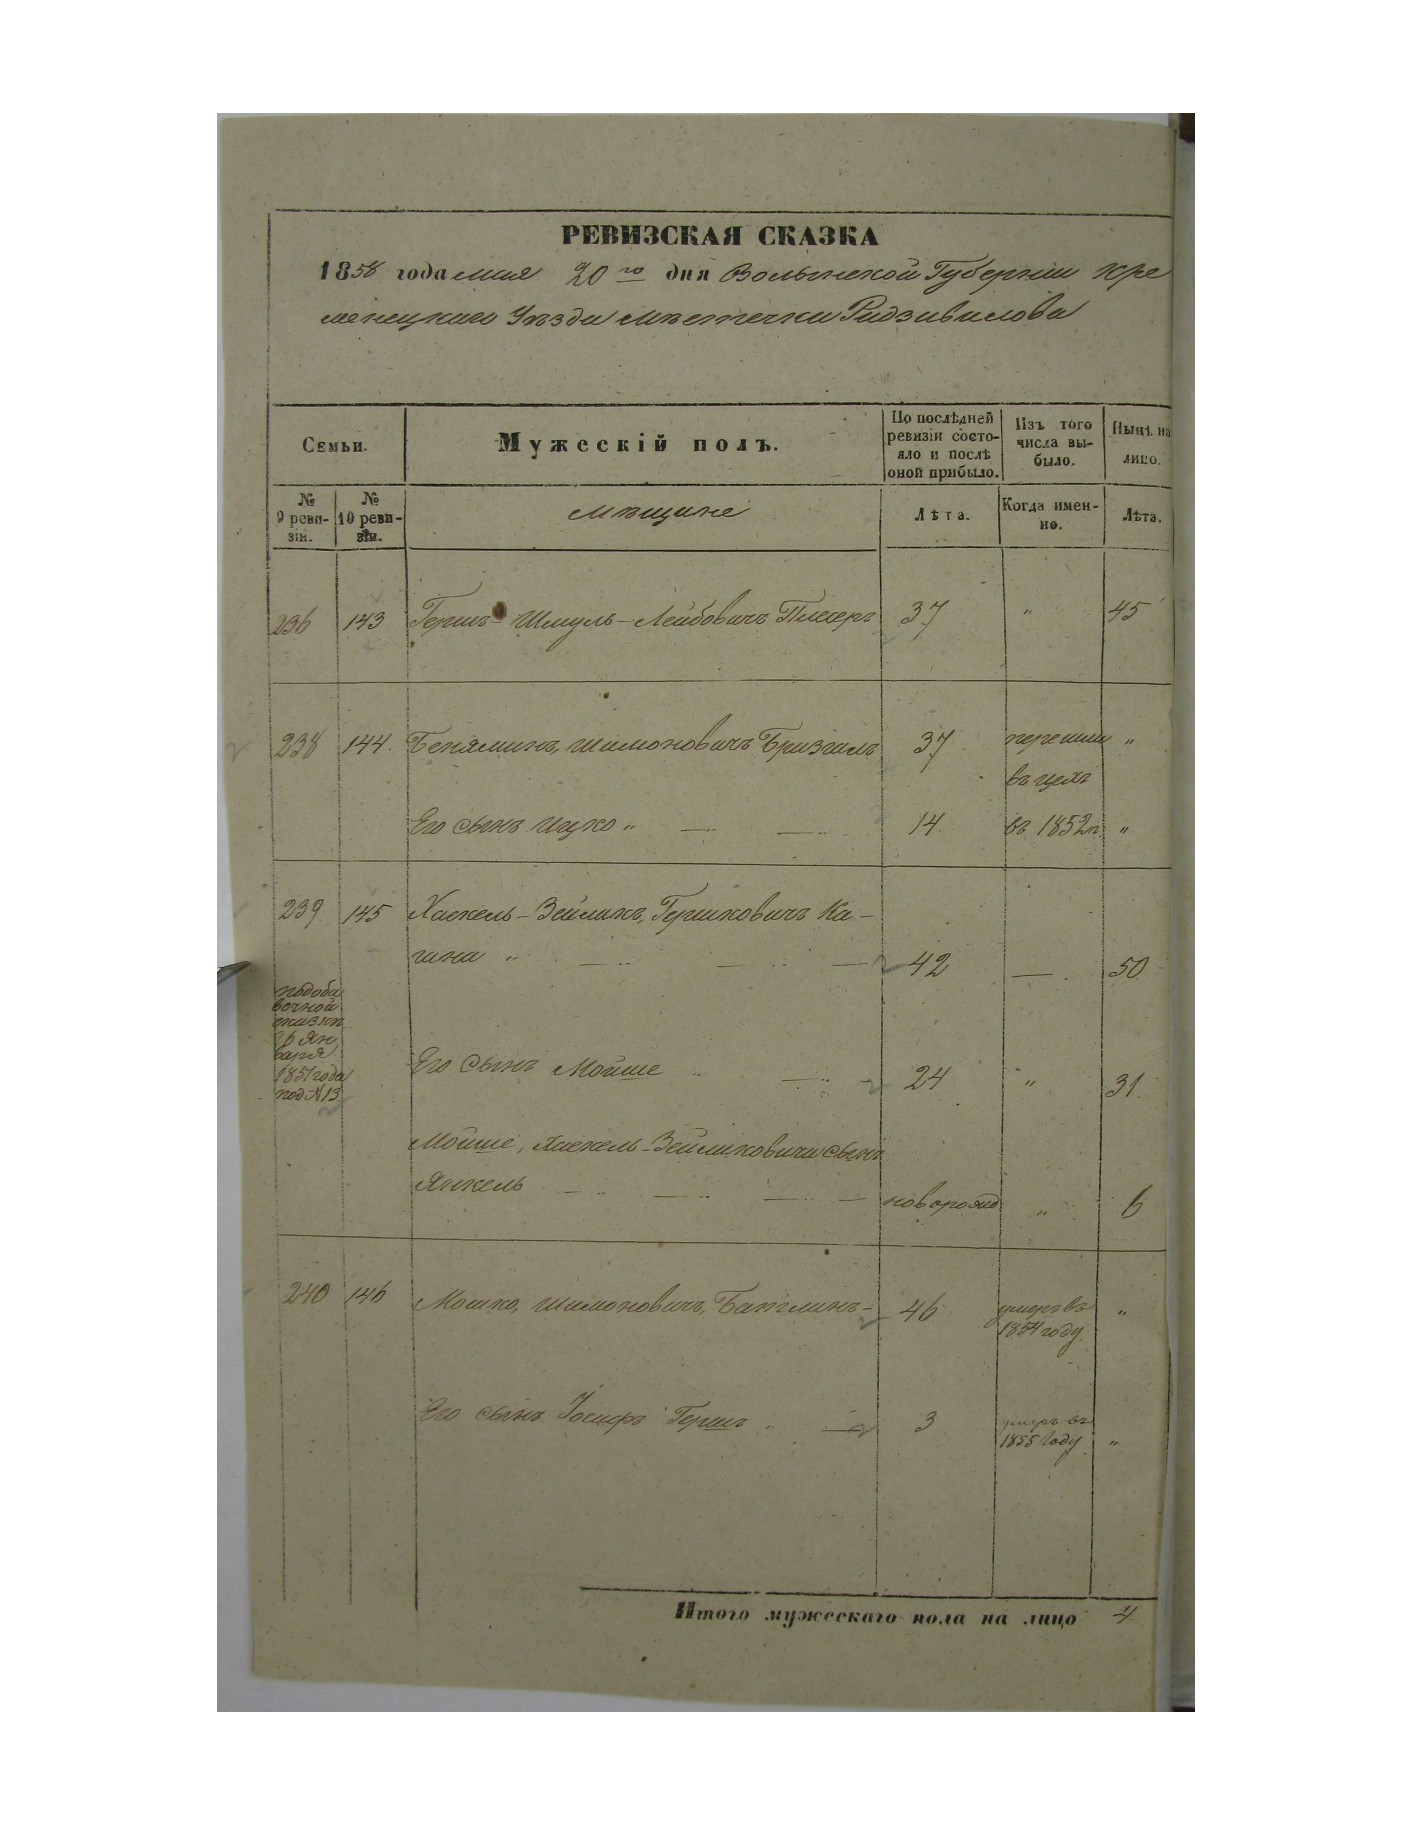 РЕВИЗСКАЯ СКАЗКА
1858 года мая 20го дня Волынской Губерніи Кре
менецкаго Уѣзда мѣстечка Радзивилова
Семьи.
Мужескій полъ.
По послѣдней ревизіи состо-
яло и послѣ оной прибыло.
Изъ того числа вы-
было.
Нынѣ на лицо.
№ 9 реви-
зіи.
№ 10 реви-
зіи.
мѣщане
Лѣта.
Когда имен-
но.
Лѣта.
236 143 Гершъ-Шмуль-Лейбовичъ 37 " 45
238 144. Беняминъ, Шимоновичъ 37 перешли "
въ цехъ
Его сынъ Ицко " 14. въ 1852 г. "
239. 145 Хаскель-Зейликъ, Гершковичъ Ка-
гана " 42 — 50
подоба
вочной
сказки
Ян
варя
1851 года
под N 13.
Его сынъ Мойше " 24 " 31.
Мойше, Хаскель-Зейликовича сынъ
Янкель новорожд " 6
240 146 Мошко, Шимоновичъ, 46 умеръ въ "
1854 году.
Его сынъ Іосифъ Гершъ " 3 умеръ въ
1855 году "
Итого мужескаго пола на лицо 4